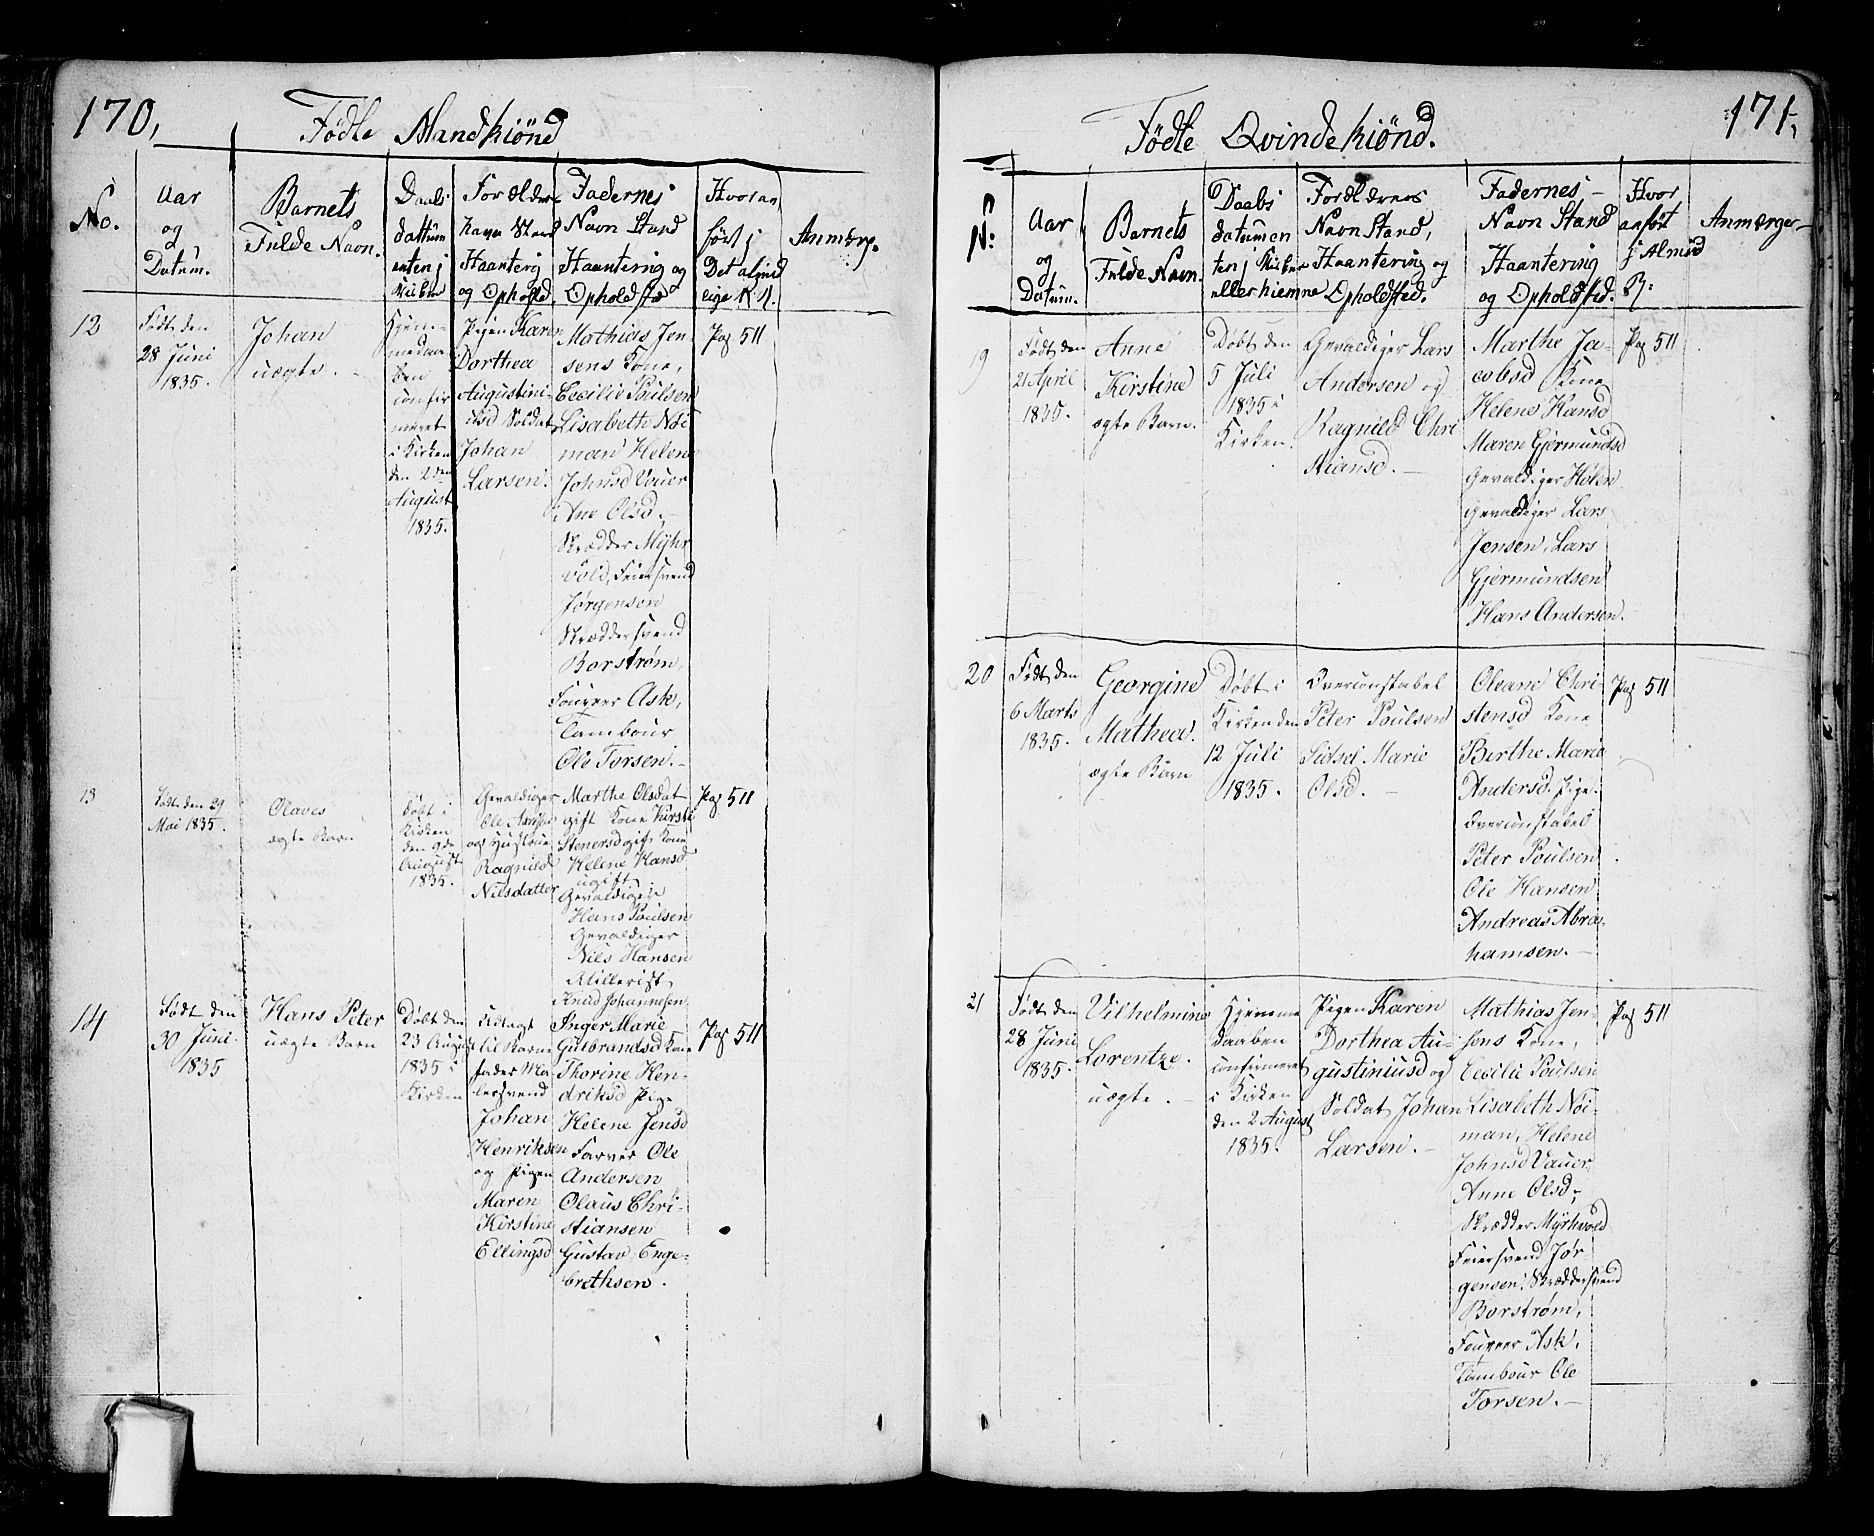 170,
Fødte Mandkiönd
No.
Aar
og
Datum.
Barnets
Fulde Navn.
Daabs
dattum
enten i
Kirken
Forældre
Navn Stand
Haantering
og Ophold
Fadernes
Navn Stand
Haantering og
Opholdstæ
Hvor an
ført i
Det almind
elige R.
Anmærg.
12
Født den
28 Juni
1835.
Johan
uægte. -
Hjem-
medaa-
ben
confir
meret
i Kirken
den 2den
August
1835.
Pigen Karen
Dorthea
Augustini-
usd Soldat
Johan
Larsen.
Mathias Jen-
sens Kone,
Cecilie Poulsen
Lisabeth Nöi
man Helene
Johnsd Vauer
Ane Olsd. -
Skrædder Myhr
vold, Feiersvend
Jørgensen
Skræddersvend
Borstrøm,
Foureer Ask,
Tambour
Ole Torsen. -
Pag 511
13
Født den 29
Mai 1835.
Olaves
ægte Barn
Døbt i
Kirken
den 9de
August
1835.
Gevaldiger
Ole
og Hustrue
Ragnild
Nilsdatter
Marthe Olsdat
gift Kone Kirsti
Stenersd gift Kone
Helene Hansd
ugift
Gevaldiger
Hans Poulsen
Gevaldiger
Nils Hansen
Knud Johannesen
Pag 511
14
Født den
30 Juni
1835
Hans Peter
uægte Barn
Døbt den
23 August
1835 i
Kirken
Udlagt
til Barne
fader Ma
lersvend
Johan
Henriksen
og Pigen
Maren
Kirstine
Ellingsd
Inger Marie
Gulbrandsd Kone
Thorine Hen-
driksd Pige
Helene Jensd
Farver Ole
Andersen
Olaus Chri-
stiansen
Gustav Enge-
brethsen.
Pag 511
171,
Födte Qvindekiönd.
N:
Aar
og
Datum.
Barnets
Fulde Navn.
Daabs
datum en
ten i Kirken
eller hiemme
Forældrenes
Navn Stand,
Haantering og
Opholdsted.
Fadernes -
Navn Stand
Haantering
og Opholdsted.
Hvor
anført
i Almind
R:
Anmærger-
19
Født den
21 April
1835.
Anne
Kirstine
ægte Barn.
Døbt den
5 Juli
1835 i
Kirken.
Gevaldiger Lars
Andersen og
Ragnild Chri
stiansd. -
Marthe Ja-
cobsd Kone
Helene Hansd
Maren Gjermundsd
Gevaldiger Holen
Gevaldiger Lars
Jensen, Lars
Gjermundsen
Hans Andersen.
Pag 511
20
Født den
6 Marts
1835.
Georgine
Mathea.
ægte Barn
Døbt i
Kirken den
12 Juli
1835.
Overconstabel
Peter Poulsen
Sidsel Marie
Olsd. -
Oleane Chri-
stensd Kone
Birthe Marie
Andersd. Pige.
Overconstabel
Peter Poulsen
Ole Hansen
Andreas Abra-
hamsen. -
Pag 511
21
Født den
28 Juni
1835.
Vilhelmine
Lorentze.
uægte. -
Hjemme
daaben
confirmeret
i Kirken
den 2 August
1835.
Pigen Karen
Dorthea Au-
gustiniusd og
Soldat Johan
Larsen. -
Mathias Jen-
sens Kone,
Cecilie Poulsen
Lisabeth Nöi-
man, Helene
Johnsd Vauer,
Anne Olsd,
Skrædder Myrhvold
Feiersvend Jør-
gensen, Skræddersvend
Borstrøm,
Foureer Ask,
Tambour Ole
Torsen. -
Pag 511